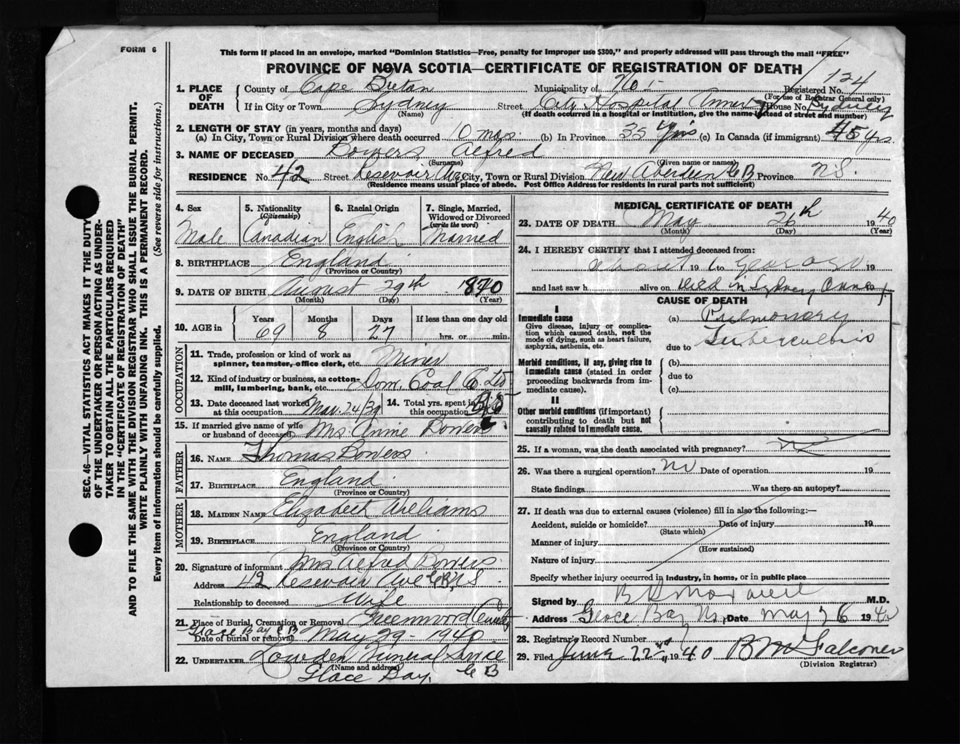 FORM 6
This form if placed in an envelope, marked "Dominion Statistics—Free, penalty for improper use $300," and properly addressed will pass through the mail "FREE"
PROVINCE OF NOVA SCOTIA—CERTIFICATE OF REGISTRATION OF DEATH
124
1. PLACE OF DEATH
County of Cape Breton Municipality of No 1 Registered No.
(For use of Registrar General only)
If in City or Town Sydney Street City Hospital Annex House No. Sydney
(Name) (If death occurred in a hospital or institution, give the name instead of street and number)
2. LENGTH OF STAY (in years, months and days)
(a) In City, Town or Rural Division where death occurred 6 mos. (b) In Province 35 Yrs (c) In Canada (if immigrant) 45 yrs.
3. NAME OF DECEASED Bowers Alfred
(Surname) (Given name or names)
RESIDENCE No. 42 Street Resevoir Ave City, Town or Rural Division New Aberdeen C B Province N.S.
(Residence means usual place of abode. Post Office Address for residents in rural parts not sufficient)
4. Sex 5. Nationality (Citizenship) 6. Racial Origin 7. Single, Married, Widowed or Divorced (write the word)
Male Canadian English Married
8. BIRTHPLACE England
(Province or Country)
9. DATE OF BIRTH August 29th 1870
(Month) (Day) (Year)
10. AGE in Years Months Days If less than one day old
69 8 27 hrs. or min.
OCCUPATION
11. Trade, profession or kind of work as spinner, teamster, office clerk, etc. Miner
12. Kind of industry or business, as cotton-mill, lumbering, bank, etc. Dom. Coal Co Ltd
13. Date deceased last worked at this occupation Mar. 24/39 14. Total yrs. spent in this occupation
15. If married give name of wife or husband of deceased Mrs. Annie Bowers
FATHER
16. NAME Thomas Bowers
17. BIRTHPLACE England
(Province or Country)
MOTHER
18. MAIDEN NAME Elizabeth
19. BIRTHPLACE England
(Province or Country)
20. Signature of informant Mrs Alfred Bowers
Address 42 Resevoir Ave C.B. N.S.
Relationship to deceased Wife
21. Place of Burial, Cremation or Removal Greenwood Cemetery
Glace Bay C B
Date of burial or removal May 29 - 1940
22. UNDERTAKER Lowden Funeral Service
(Name and address)
Glace Bay C B
MEDICAL CERTIFICATE OF DEATH
23. DATE OF DEATH May 26th 1940
(Month) (Day) (Year)
24. I HEREBY CERTIFY that I attended deceased from:
19 to 19
and last saw h alive on Died in Sydney Annex
CAUSE OF DEATH
I
Immediate cause
Give disease, injury or complication which caused death, not the mode of dying, such as heart failure, asphyxia, asthenia, etc.
(a) Pulmonary
due to Tuberculosis
Morbid conditions, if any, giving rise to immediate cause (stated in order proceeding backwards from immediate cause).
(b)
due to
(c)
II
Other morbid conditions (if important) contributing to death but not causally related to immediate cause.
25. If a woman, was the death associated with pregnancy?
26. Was there a surgical operation? No Date of operation 19
State findings Was there an autopsy?
27. If death was due to external causes (violence) fill in also the following:—
Accident, suicide or homicide? Date of injury 19
(State which)
Manner of injury
(How sustained)
Nature of injury
Specify whether injury occurred in industry, in home, or in public place
Signed by M.D.
Address Glace Bay N.S. Date May 26 1940
28. Registrar's Record Number
29. Filed June 22nd 1940 B M Falconer
(Division Registrar)
SEC. 46—VITAL STATISTICS ACT MAKES IT THE DUTY
OF THE UNDERTAKER OR PERSON ACTING AS UNDER-
TAKER TO OBTAIN ALL THE PARTICULARS REQUIRED
IN THE "CERTIFICATE OF REGISTRATION OF DEATH"
AND TO FILE THE SAME WITH THE DIVISION REGISTRAR WHO SHALL ISSUE THE BURIAL PERMIT.
WRITE PLAINLY WITH UNFADING INK. THIS IS A PERMANENT RECORD.
Every item of information should be carefully supplied. (See reverse side for instructions.)